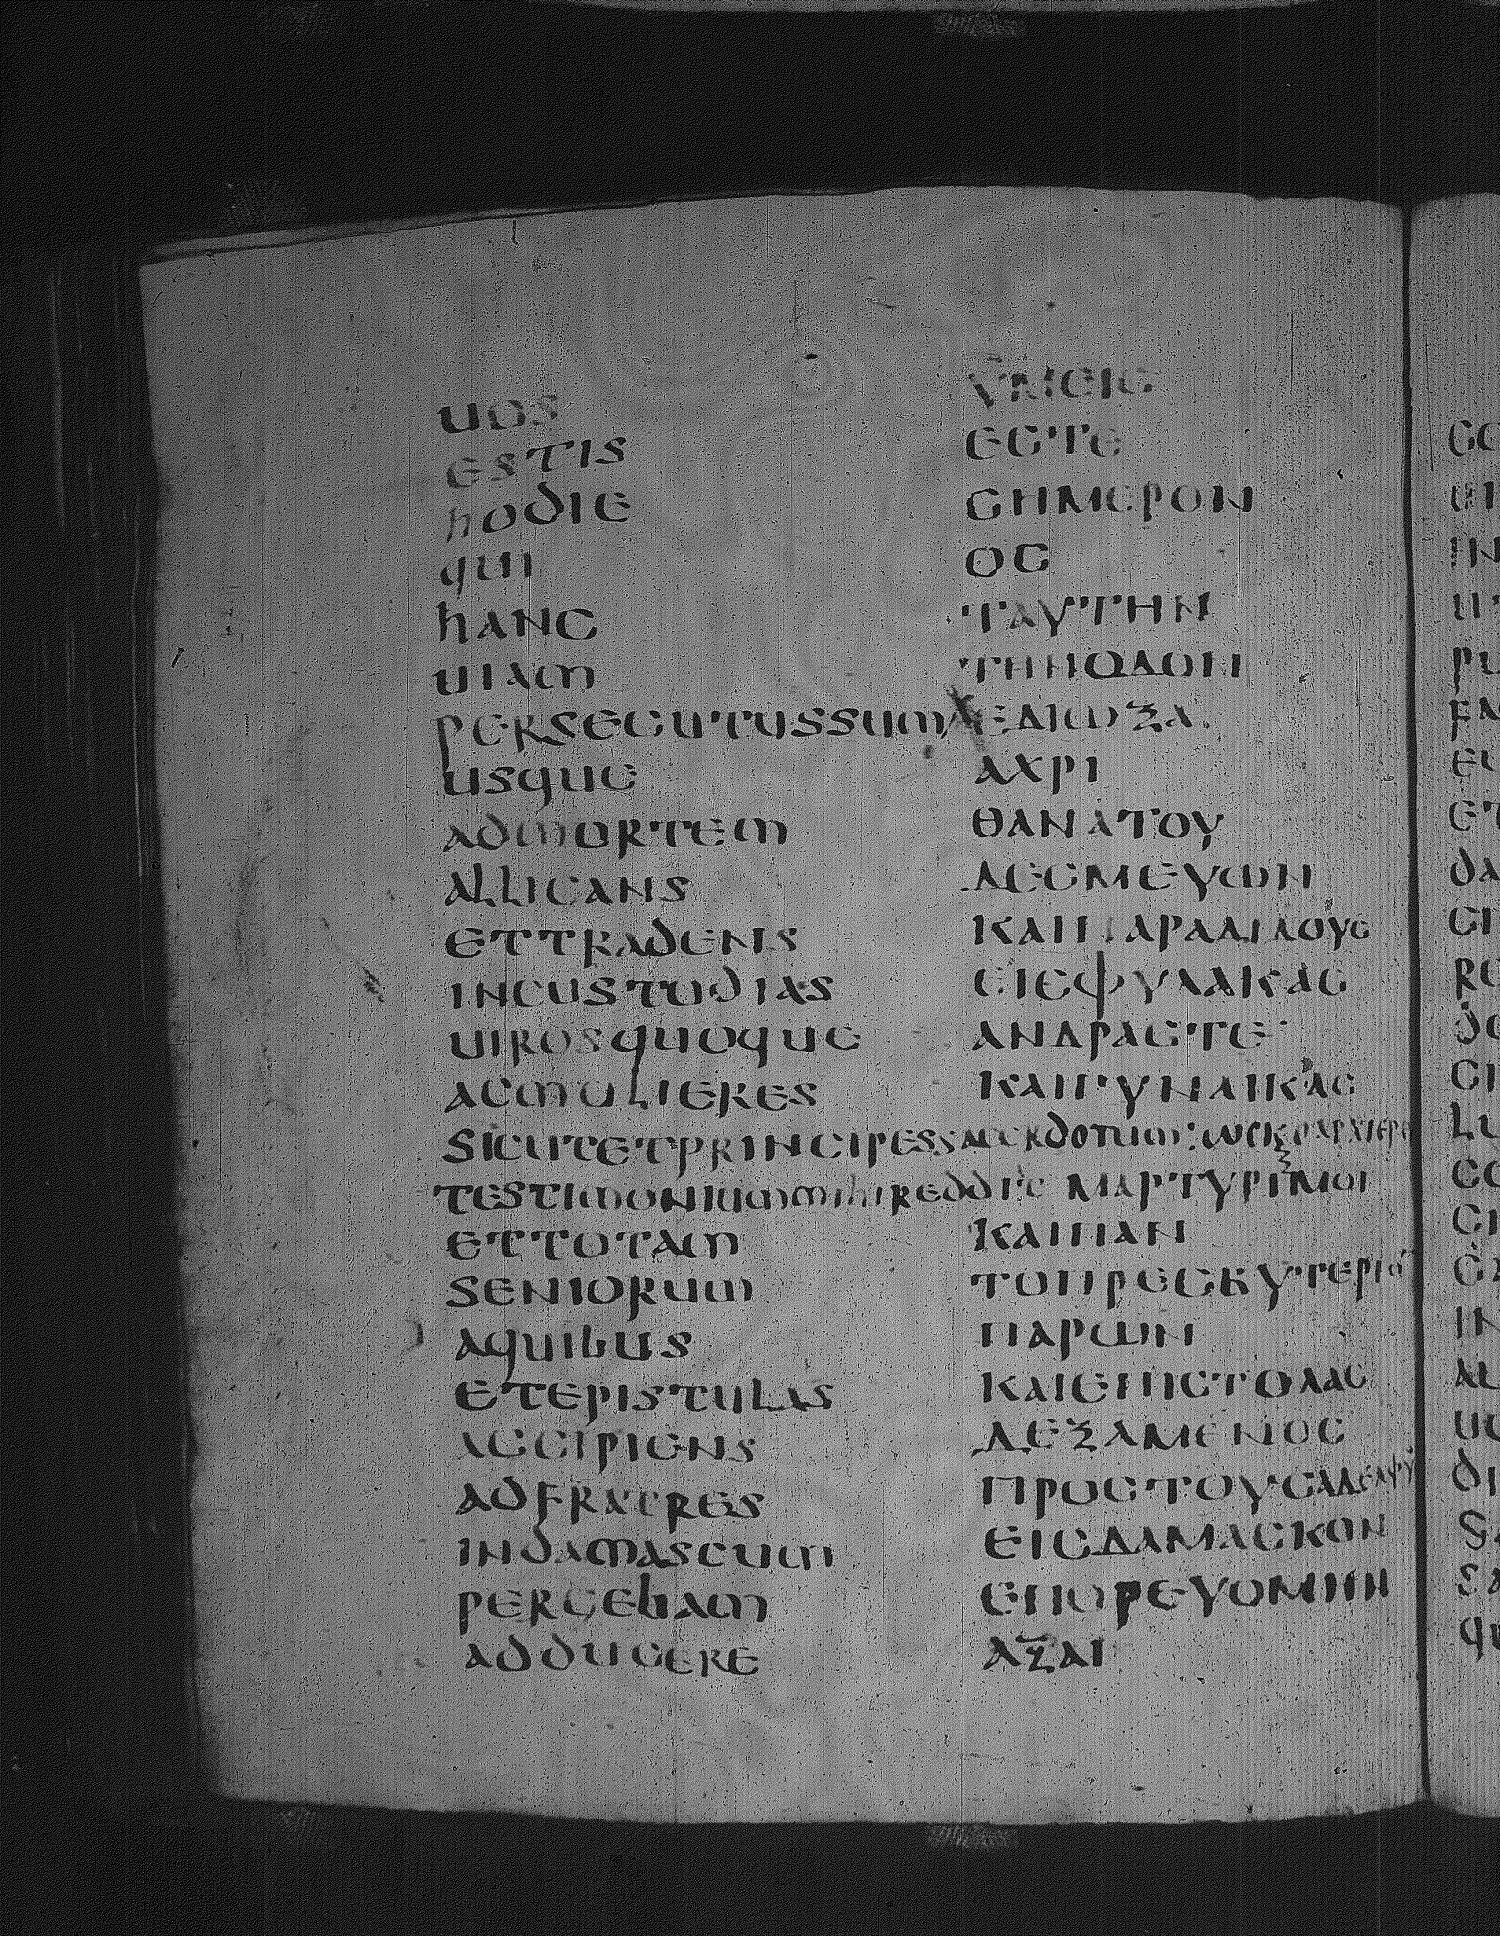 uos
estis
hodie
qui
hanc
uiam
persecutussum
usque
admortem
alligans
ettradens
incustodias
uirosquoque
acmulieres
sicutetprincipessacerdotum
testimoniummihireddit
ettotam
seniorum
aquibus
etepistulas
accipiens
adfratres
indamascum
pergebam
adducere
ΥΜΕΙC
ΕCΤΕ
CΗΜΕΡΟΝ
ΟC
ΤΑΥΤΗΝ
ΤΗΝΩΔΟΝ
ΕΔΙΩΞΑ
ΑΧΡΙ
ΘΑΝΑΤΟΥ
ΔΕCΜΕΥΩΝ
ΚΑΙΠΑΡΑΔΙΔΟΥC
ΕΙCΦΥΛΑΚΑC
ΑΝΔΡΑCΤΕ
ΚΑΙΓΥΝΑΙΚΑC
ΜΑΡΤΥΡΙΜΟΙ
ΚΑΙΠΑΝ
ΤΟΠΡΕCΒΥΤΕΡΙΟ
ΠΑΡΩΝ
ΚΑΙΕΠΙCΤΟΛΑC
ΔΕΞΑΜΕΝΟC
ΠΡΟCΤΟΥCΑΔΕΛΦΥ
ΕΙCΔΑΜΑCΚΟΝ
ΕΠΟΡΕΥΟΜΗΝ
ΑΞΑΙ